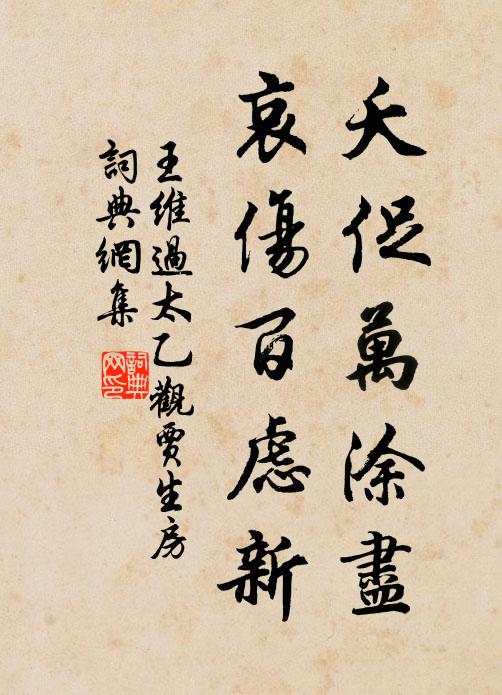 夭促萬涂盡
哀傷百慮新
王維過太乙觀賈生房
詞典網集
詞典网印